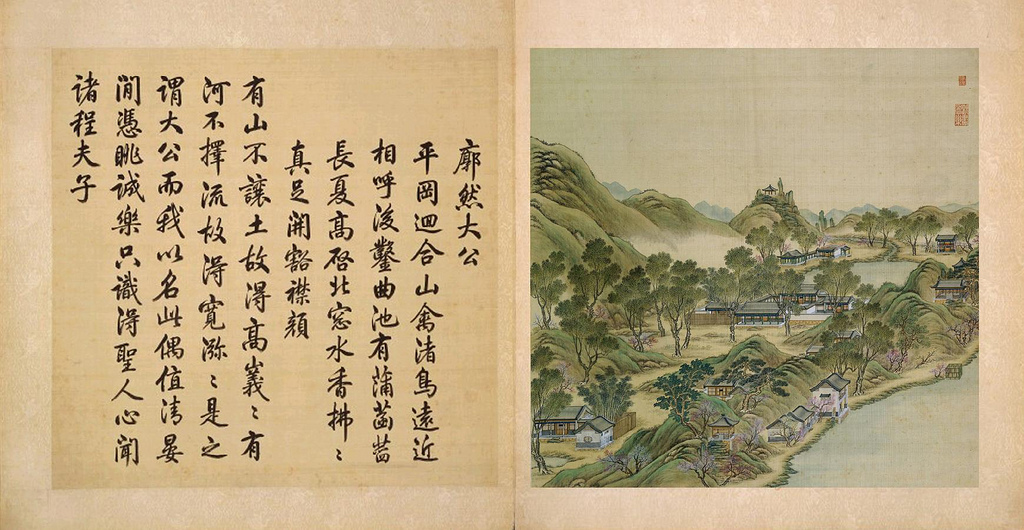 廓然大公
平岡迴合山禽渚鳥遠近
相呼後鑿曲池有蒲菡萏
長夏高啓北窓水香拂〻
真足開豁襟顔
有山不讓土故得高嶬〻有
河不擇流故得寬㳽〻是之
謂大公而我以名此偶值清晏
閒憑眺誠樂只識得聖人心聞
諸程夫子